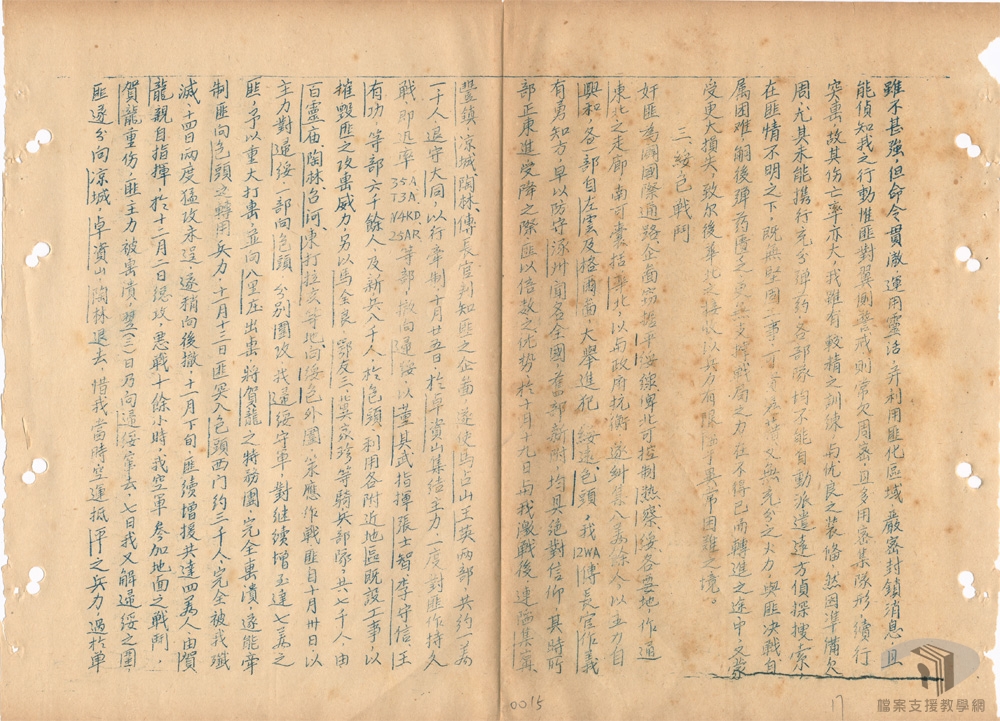 雖不甚強，但命令貫澈，運用靈活，并利用匪化區域，嚴密封鎖消息，且
能偵知我之行動，惟匪對翼側警戒，則常欠周密，且多用密集隊形，續行
突擊，故其傷亡率亦大，我雖有較精之訓練，与优良之裝備，然因準備欠
周，尤其未能攜行充分彈药，各部隊均不能自動派遣遠方偵探搜索，
在匪情不明之下，既無堅固工事，可又無充分之火力，與匪决戰，自
属困难，嗣後彈药匱乏，更無支障戰局之力，在不得已而轉進之途中，又蒙
受更大損失，致尔後華北之接收，以兵力有限，陷于異常困難之境。
三、綏包戰鬥
奸匪為闢國際通路，企啚窃據平綏線，俾北可控制熱察綏各要地，作通
東北之走廊，南可囊括華北，以与政府抗衡，遂糾集八萬餘人，以主力自
興和，各一部自左雲及格爾啚，大舉進犯綏遠包頭，我12WA傅長官作義
有勇知方，早以防守涿州，賓名全國，舊部新附，均具絶對信仰，其時所
部正東進受降之際，匪以倍敌之优势，於十月十九日与我激戰後，連陷集寧，
豐鎮，凉城，陶林，傅長官判知匪之企啚，遂使馬占山王英兩部，共約一萬
一千人，退守大同，以行牽制，十月廿五日，於卓資山集结主力，一度對匪作持久
戰，即迅率35A T3A N4KD 25AR等部，撤向歸綏，以董其武指揮張士智，李守信，王
有功，等部六千餘人及新兵八千人，於包頭利用各附近地區既設工事，以
摧毀匪之攻擊威力，另以馬全良，鄂友三，北異，哀玲等騎兵部隊，共七千人，由
百靈庙，陶林，召河，東打拉亥，等地，向綏包外圍，策應作戰，匪自十月卅日，以
主力對歸綏，一部向包頭，分别圍攻，我歸綏守軍，對继續增至達七萬之
匪，予以重大打擊，並向八里庄出擊，將賀龍之特務團，完全擊潰，遂能牽
制匪向包頭之轉用兵力，十一月十三日匪突入包頭西門約三千人，完全被我殲
滅，十四日兩度猛攻未逞，遂稍向後撤，十一月下旬，匪續增援共達四萬人，由賀
龍親自指揮，於十二月二日總攻，惡戰十餘小時，我空軍参加地面之戰鬥，
賀龍重伤，匪主力被擊潰，翌（三）日乃向歸綏竄去，七日我又解歸綏之圍，
匪遂分向凉城，卓資山，陶林退去，惜我當時空運抵平之兵力，過於單
0015
17
檔案支援教學網